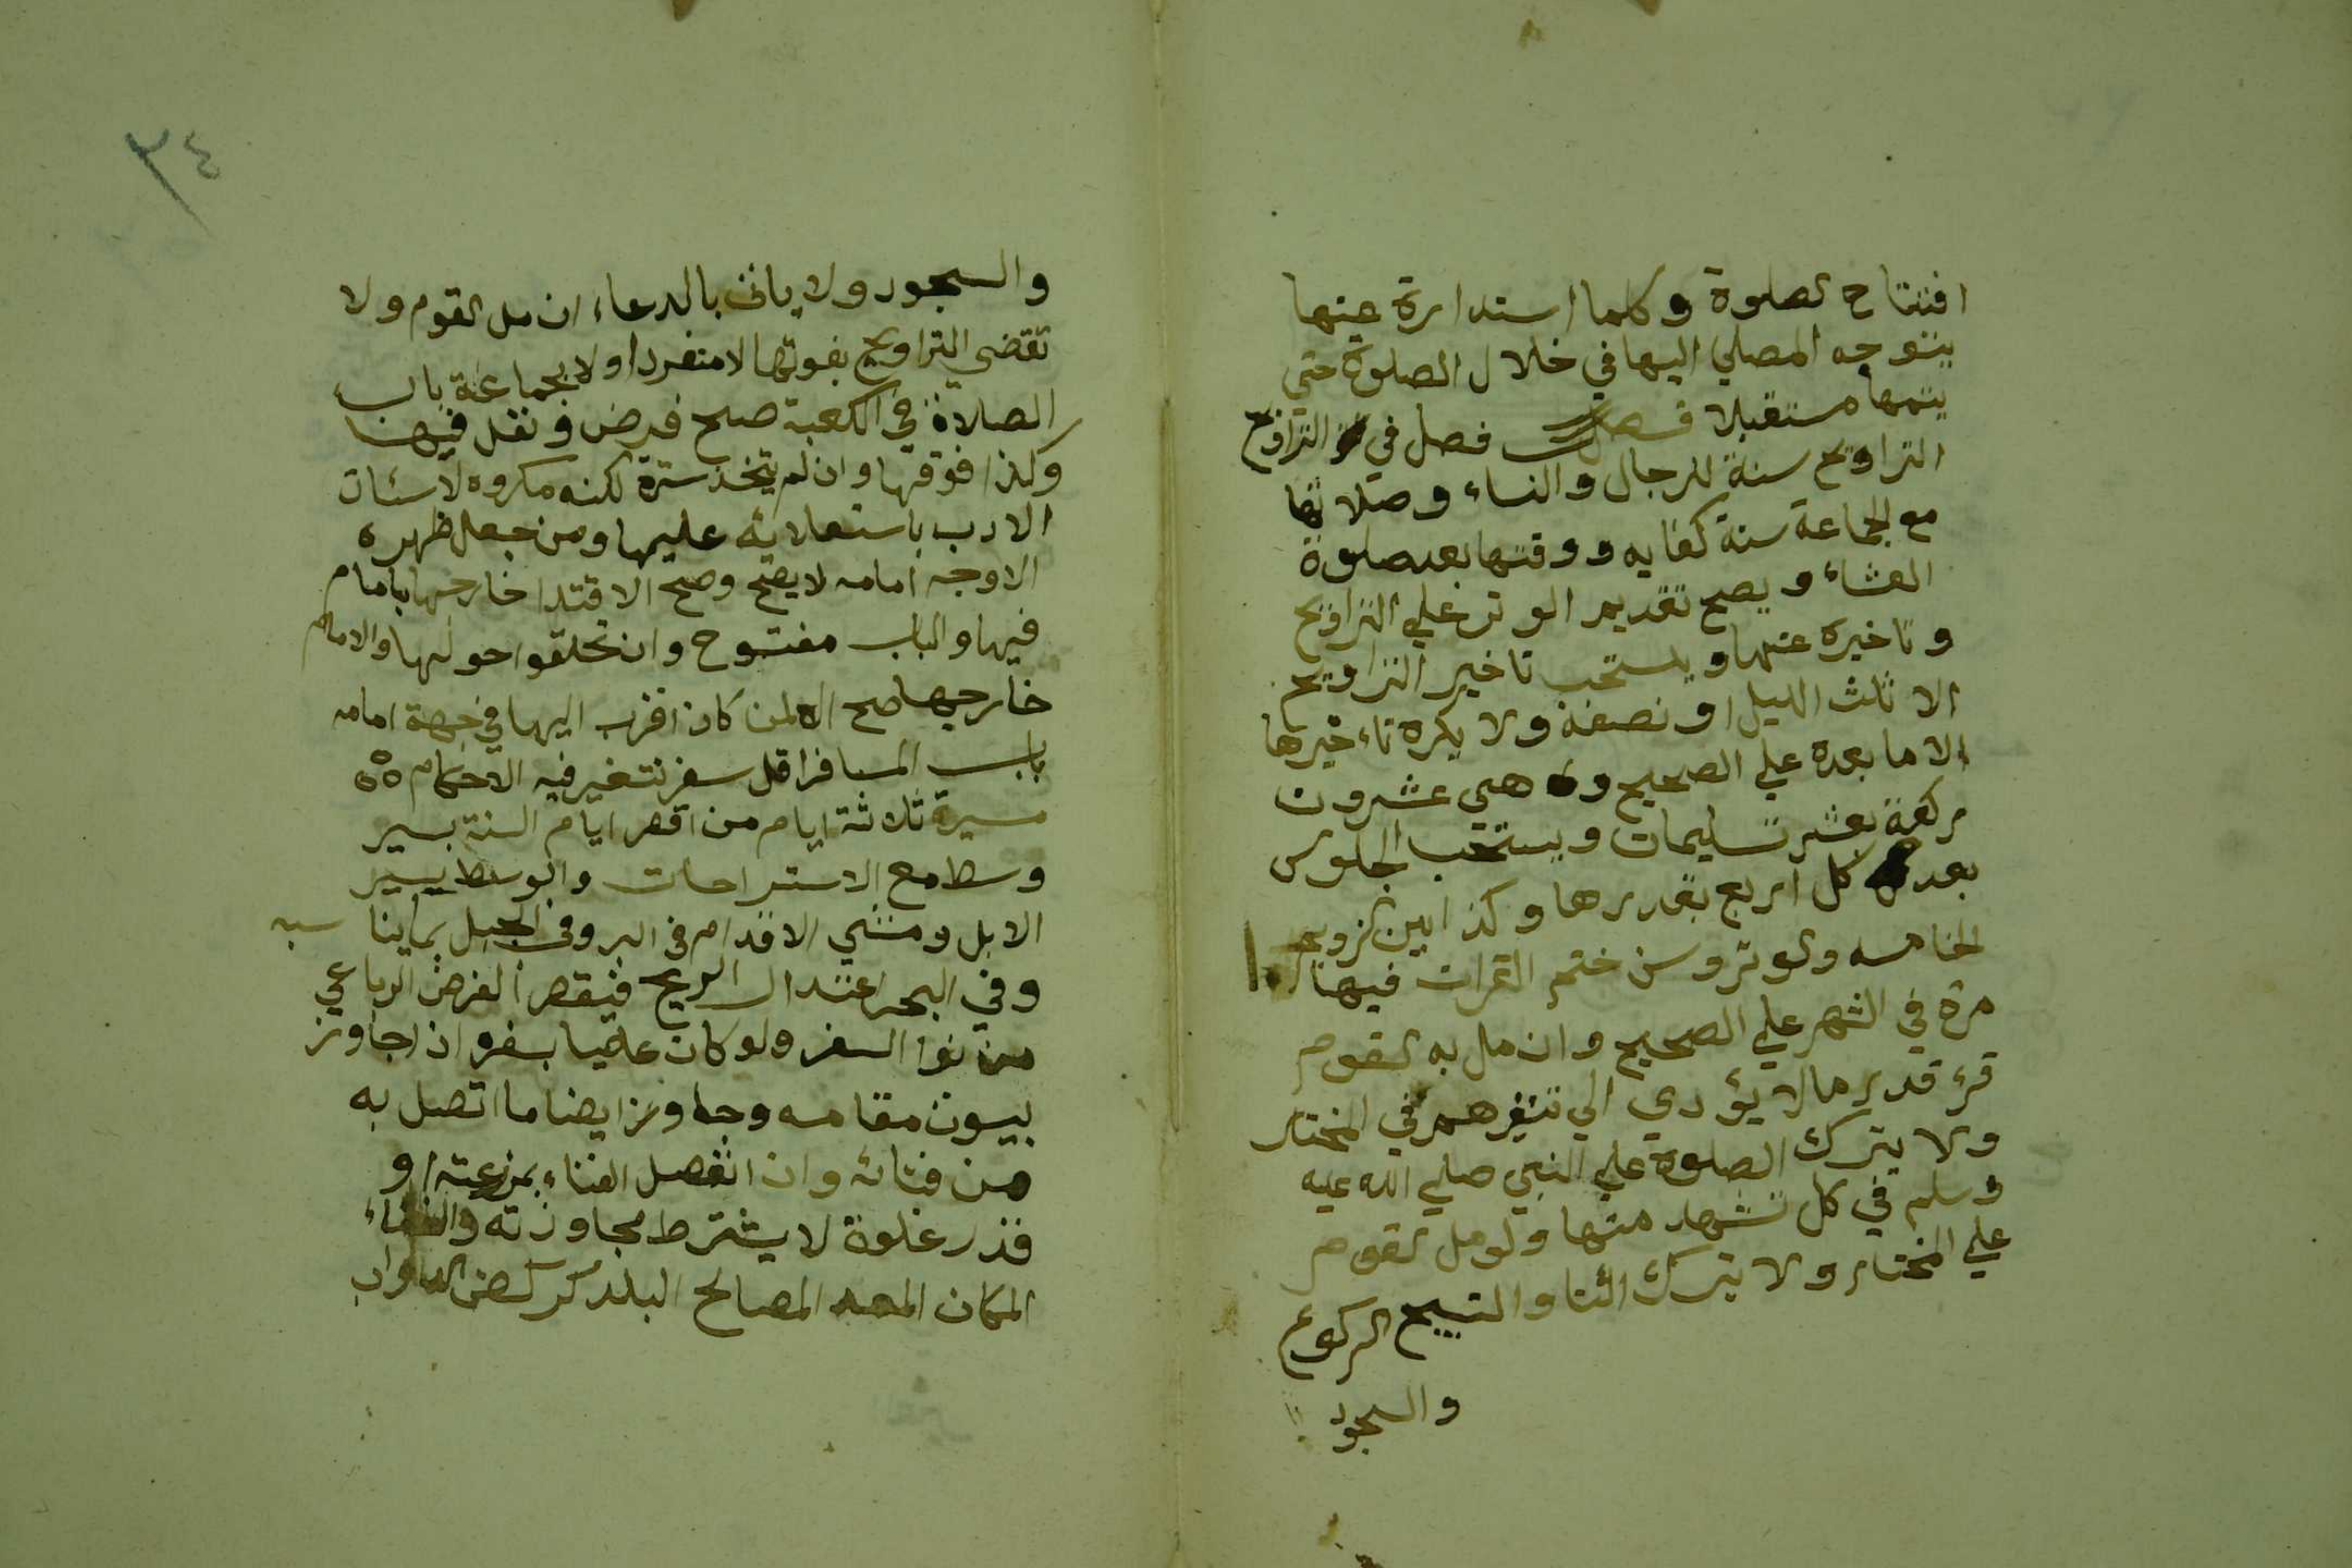 افتتاح الصلوة وكلما استدارة عينها
يتوجه المصلي اليها في خلال الصلوة حتي
يتمها مستقبلا فصل في التراويح
التراويح سنة للرجال والنساء وصلاتها
مع الجماعة سنة كفايه ووقتها بعد صلوة
العشاء ويصح تقديم الوتر علي التراويح
وتاخيره عنها ويستحب تاخير التراويح
الا ثلث الليل او نصفه ولا يكره تاءخيرها
الا ما بعده علي الصحيح وهي عشرون
ركعة بعشر تسليمات ويستحب الجلوس
بعد كل اربع بقدرها وكذا بين الترويحه
الخامسه والوتر وسن ختم القران فيها
مرة في الشهر علي الصحيح وان مل به القوم
قرء قدر ما لا يؤدي الي تنفيرهم في المختار
ولا يترك الصلوة علي النبي صلي الله عليه
وسلم في كل تشهد منها ولو مل القوم
علي المختار ولا يترك الثنا والتسبيح الركوع
والسجود
٣٤
والسجود ولا ياتي بالدعاء ان مل القوم ولا
تقضي التراويح بفوتها لا منفردا ولا بجماعة باب
الصلاة في الكعبة صح فرض ونفل فيها
وكذا فوقها وان لم يتخذ سترة لكنه مكروه لاسئات
الادب باستعلائه عليها ومن جعل ظهره
الا وجه امامه لا يصح وصح الاقتدا خارجها بامام
فيها والباب مفتوح وان تحلقوا حولها والامام
خارجها صح الا لمن كان اقرب اليها في جهة امامه
باب المسافر اقل سفر تتغير فيه الاحكام
مسيرة ثلاثة ايام من اقصر ايام السنة بسير
وسط مع الاستراحات والوسط يسير
الابل ومشي الاقدام في البر وفي الجبل بما ينا سبه
وفي البحر اعتدال الريح فيقصر الفرض الرباعي
من نوا السفر ولو كان عاصيا بسفره اذا جاوز
بيوت مقامه وجاوز ايضا ما اتصل به
من فنائه وان انفصل الفناء بمزرعته او
قدر غلوة لا يشترط مجاوزته والفناء
المكان المعد المصالح البلد كركض الدواب